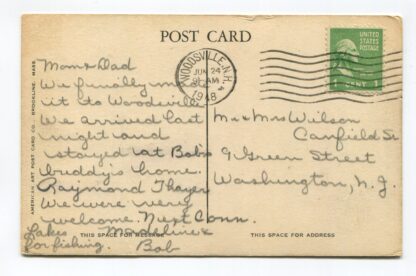 POST CARD
WOODSVILLE, N.H.
JUN 24
AM
1948
UNITED STATES POSTAGE
1 CENT 1
AMERICAN ART POST CARD CO. - BROOKLINE, MASS.
Mom & Dad
We finally m
it to Woodsville
We arrived last
night and
stayed at Bob's
buddy's home.
Raymond Thayer
We were very
welcome. Next Conn.
Lakes Madeline &
for fishing. Bob
Mr & Mrs Wilson
Canfield St
9 Green Street
Washington, N.J.
THIS SPACE FOR MESSAGE
THIS SPACE FOR ADDRESS